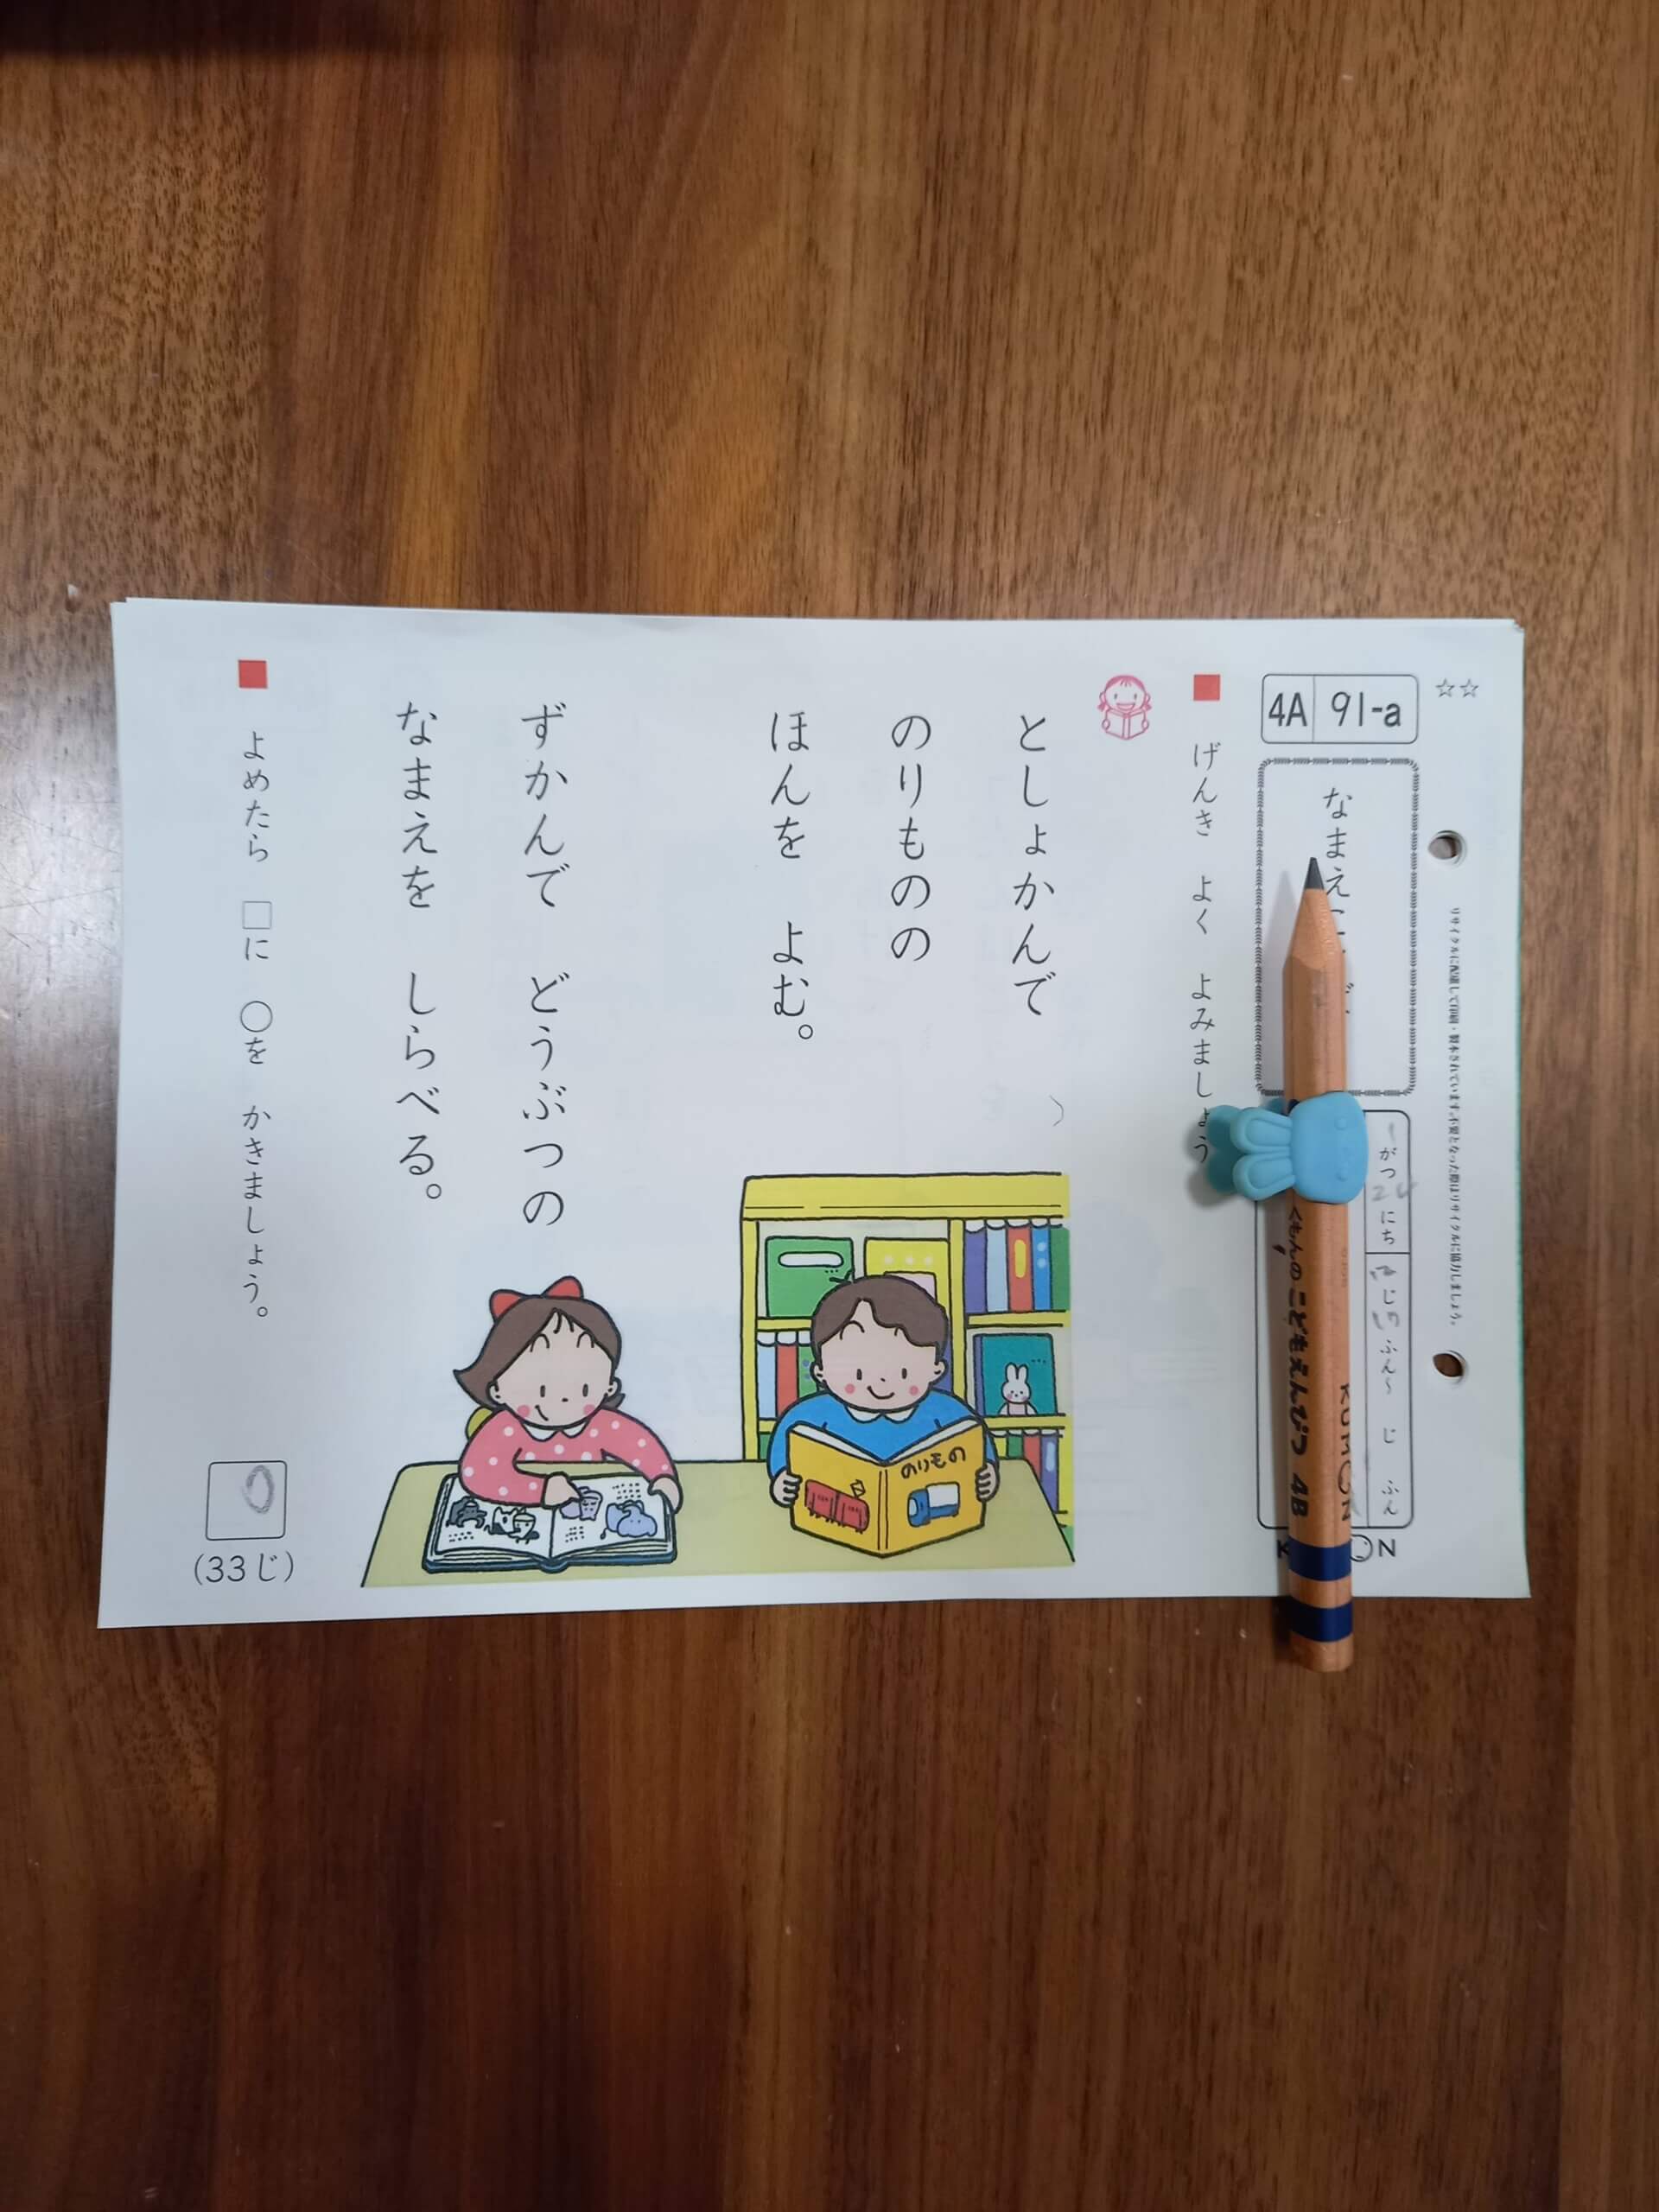 ☆☆
リサイクルに配慮して印刷・製本されています。不要となった際はリサイクルに協力しましょう。
4A 91-a
なまえ
がつ にち
じ ふん〜 じ ふん
くもんのこどもえんぴつ 4B
KUMON
げんき よく よみましょう
としょかんで
のりものの
ほんを よむ。
ずかんで どうぶつの
なまえを しらべる。
のりもの
よめたら □に ○を かきましょう。
(33じ)